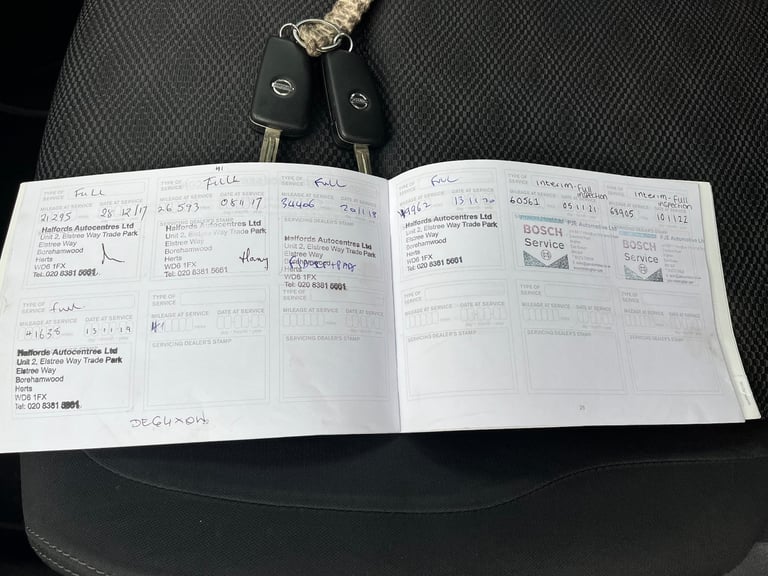 TYPE OF SERVICE Full
MILEAGE AT SERVICE DATE AT SERVICE
21295 28 12/17
Halfords Autocentres Ltd
Unit 2, Elstree Way Trade Park
Elstree Way
Borehamwood
Herts
WD6 1FX
Tel: 020 8381 5661
TYPE OF SERVICE Full
MILEAGE AT SERVICE DATE AT SERVICE
26593 08 11 17
Halfords Autocentres Ltd
Unit 2, Elstree Way Trade Park
Elstree Way
Borehamwood
Herts
WD6 1FX
Tel: 020 8381 5661
TYPE OF SERVICE Full
MILEAGE AT SERVICE DATE AT SERVICE
34406 20 11 18
SERVICING DEALER'S STAMP
Halfords Autocentres Ltd
Unit 2, Elstree Way Trade Park
Elstree Way
Herts
WD6 1FX
Tel: 020 8381 5661
TYPE OF SERVICE Full
MILEAGE AT SERVICE DATE AT SERVICE
13 11 20
Halfords Autocentres Ltd
Unit 2, Elstree Way Trade Park
Elstree Way
Borehamwood
Herts
WD6 1FX
Tel: 020 8381 5661
TYPE OF SERVICE interim-full inspection
MILEAGE AT SERVICE DATE AT SERVICE
60561 05 11 21
BOSCH
Service
TYPE OF SERVICE interim-full inspection
MILEAGE AT SERVICE DATE AT SERVICE
68905 10 11 22
BOSCH
Service
TYPE OF SERVICE Full
MILEAGE AT SERVICE DATE AT SERVICE
41638 13 11 19
Halfords Autocentres Ltd
Unit 2, Elstree Way Trade Park
Elstree Way
Borehamwood
Herts
WD6 1FX
Tel: 020 8381
TYPE OF SERVICE
MILEAGE AT SERVICE DATE AT SERVICE
SERVICING DEALER'S STAMP
TYPE OF SERVICE
MILEAGE AT SERVICE DATE AT SERVICE
SERVICING DEALER'S STAMP
TYPE OF SERVICE
MILEAGE AT SERVICE DATE AT SERVICE
SERVICING DEALER'S STAMP
TYPE OF SERVICE
MILEAGE AT SERVICE DATE AT SERVICE
SERVICING DEALER'S STAMP
TYPE OF SERVICE
MILEAGE AT SERVICE DATE AT SERVICE
SERVICING DEALER'S STAMP